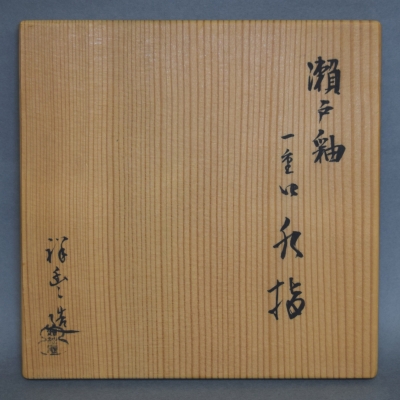 瀬戸釉
一重口 水指
祥豊造